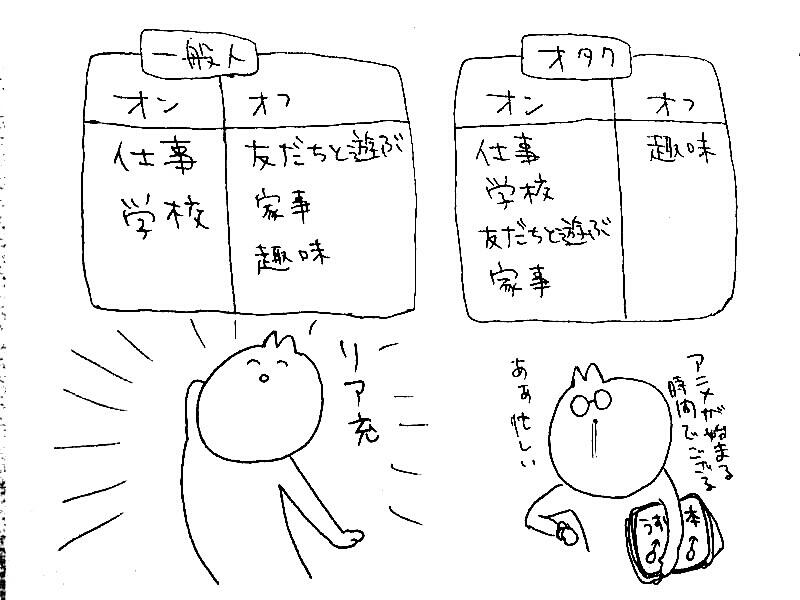 一般人
オン オフ
仕事 友だちと遊ぶ
学校 家事
趣味
オタク
オン オフ
仕事 趣味
学校
友だちと遊ぶ
家事
リア充
ああ忙しい
アニメが始まる
時間でござる
うす 本
♂ ♂